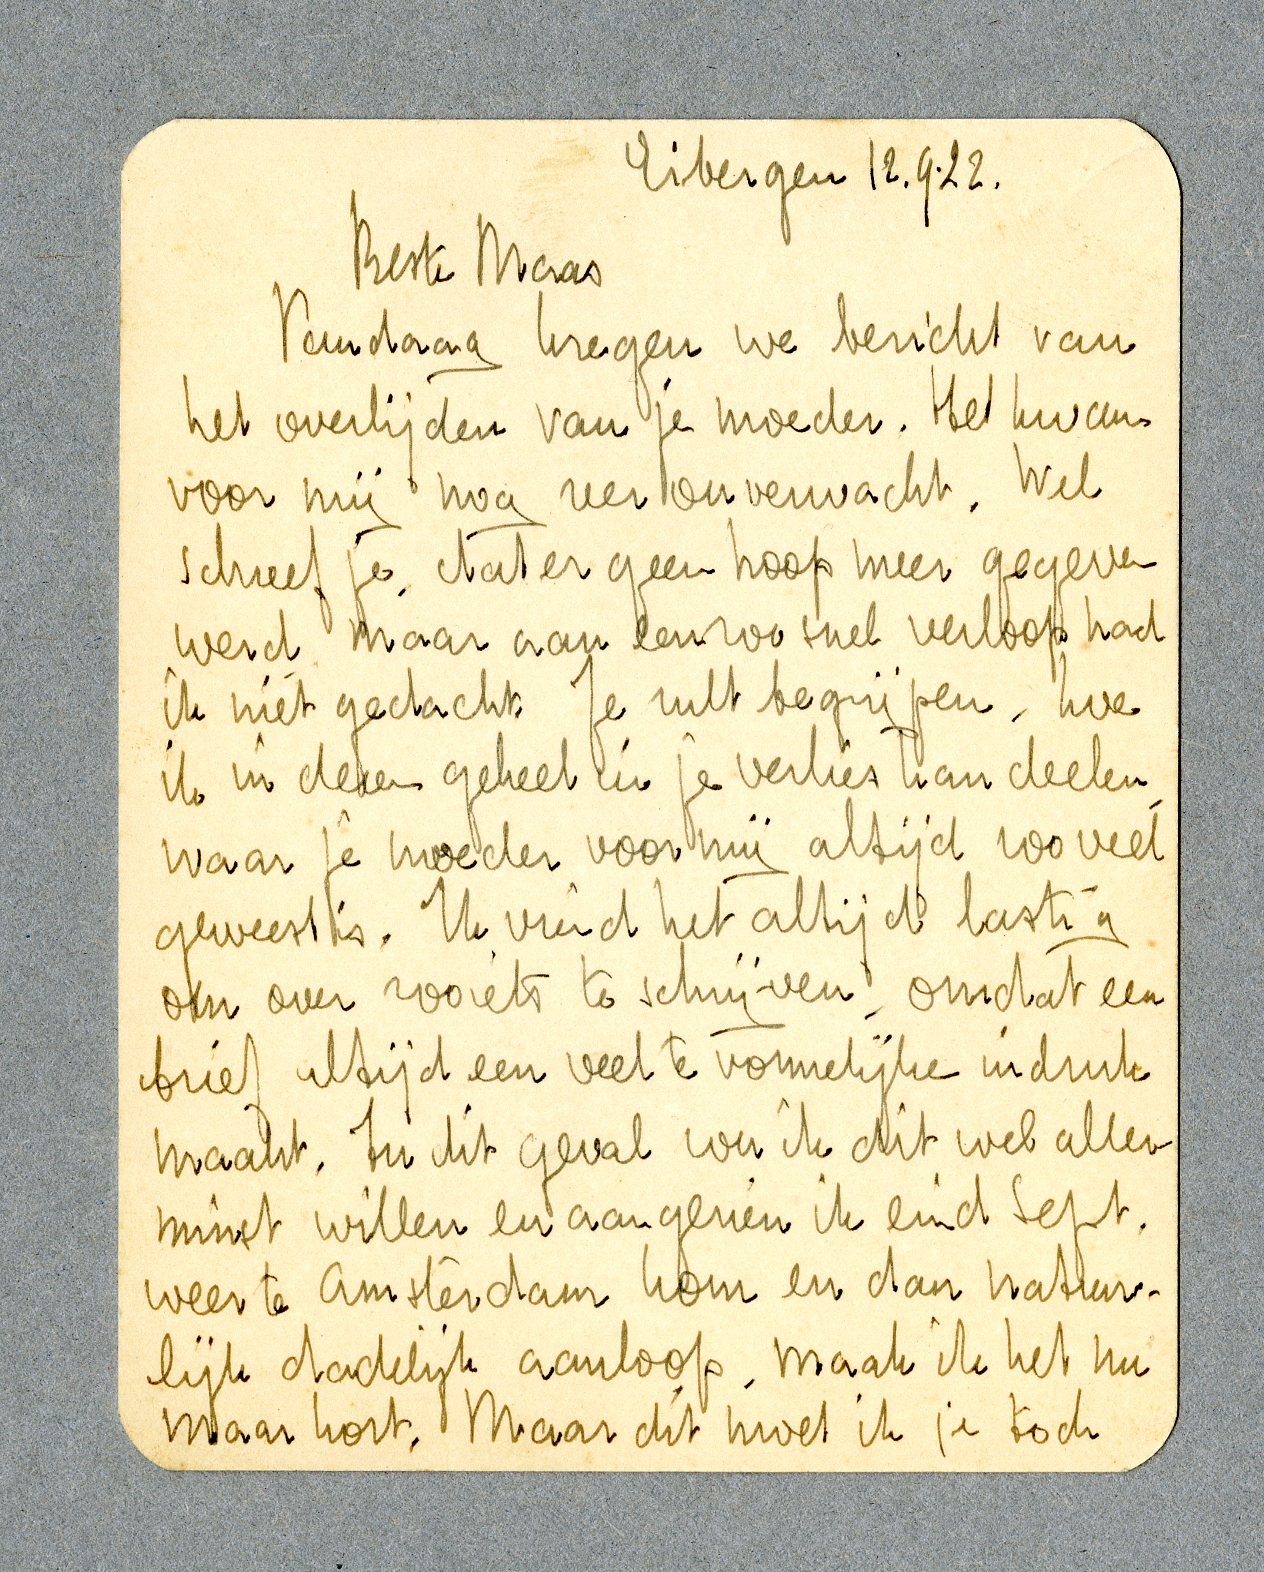 Eibergen 12.9.22.
Beste Maas
Vandaag kregen we bericht van
het overlijden van je moeder. Het kwam
voor mij nog zeer onverwacht. Wel
schreef je, dat er geen hoop meer gegeven
werd, maar aan een zoo snel verloop had
ik niet gedacht. Je zult begrijpen, hoe
ik in dezen geheel in je verlies kan deelen,
waar je moeder voor mij altijd zooveel
geweest is. Ik vind het altijd lastig
om over zooiets te schrijven, omdat een
brief altijd een veel te vormelijke indruk
maakt. In dit geval zou ik dit wel aller
minst willen en aangezien ik eind Sept.
weer te Amsterdam kom en dan natuur-
lijk dadelijk aanloop, maak ik het nu
maar kort. Maar dit moet ik je toch